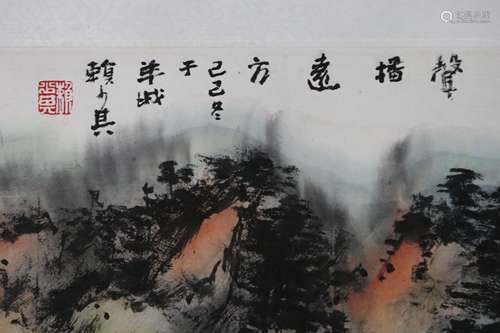 聲播遠方
己巳冬
于
羊城
賴少其